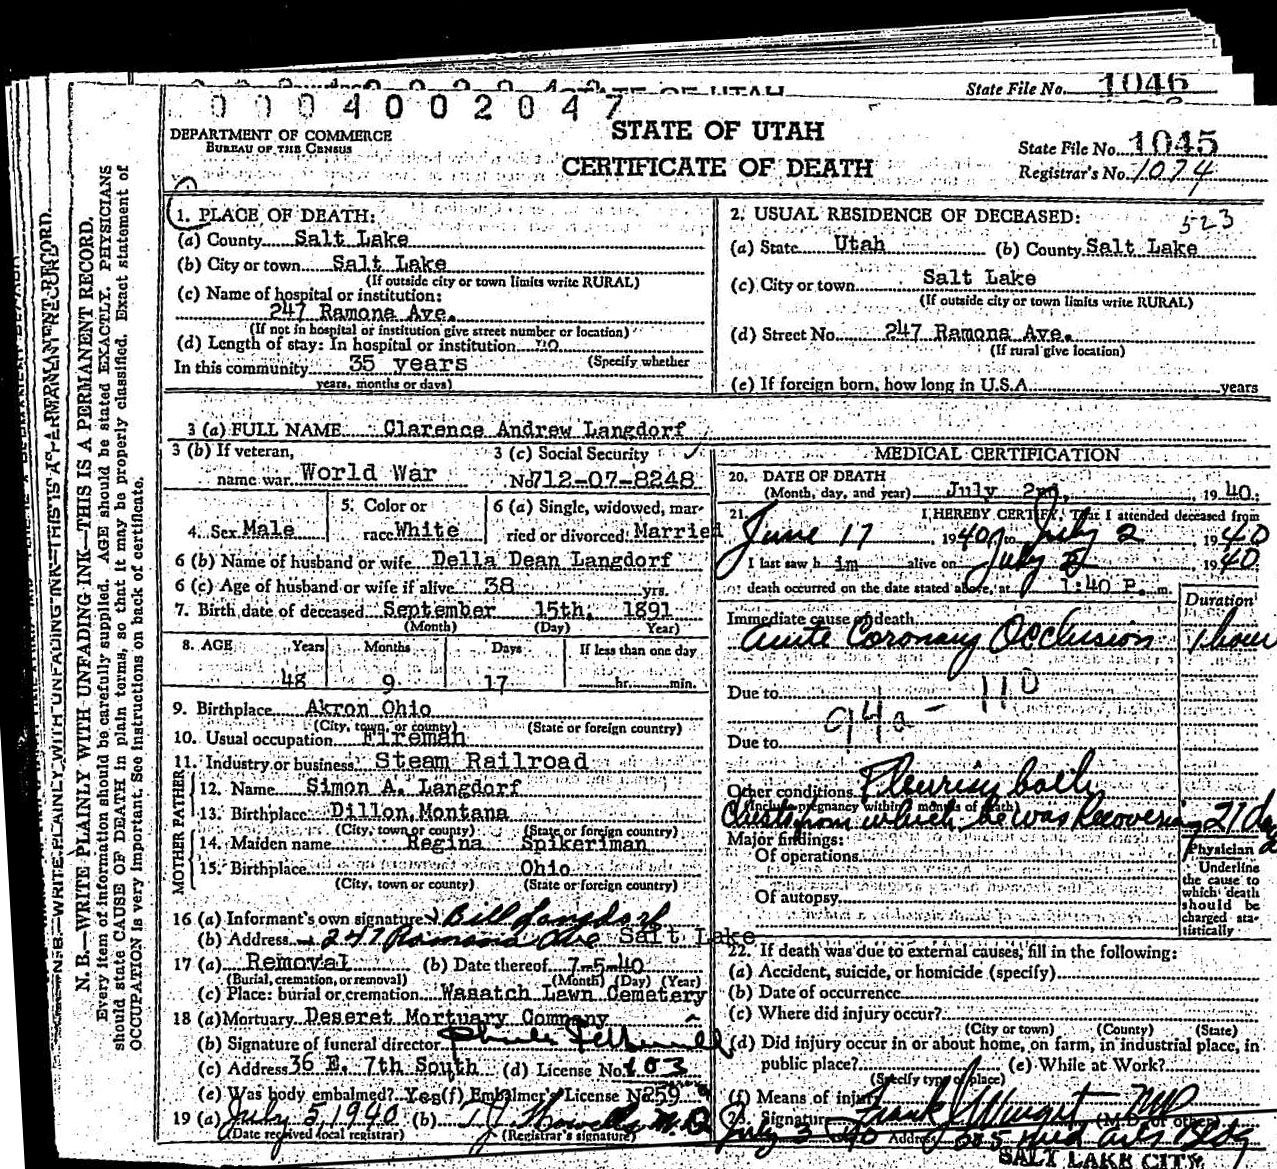 State File No. 1046
0004002047
STATE OF UTAH
CERTIFICATE OF DEATH
DEPARTMENT OF COMMERCE
BUREAU OF THE CENSUS
State File No. 1045
Registrar's No. 1074
N. B.—WRITE PLAINLY WITH UNFADING INK—THIS IS A PERMANENT RECORD.
Every item of information should be carefully supplied. AGE should be stated EXACTLY. PHYSICIANS
should state CAUSE OF DEATH in plain terms, so that it may be properly classified. Exact statement of
OCCUPATION is very important. See instructions on back of certificate.
1. PLACE OF DEATH:
(a) County Salt Lake
(b) City or town Salt Lake
(If outside city or town limits write RURAL)
(c) Name of hospital or institution:
247 Ramona Ave.
(If not in hospital or institution give street number or location)
(d) Length of stay: In hospital or institution no
(Specify whether
In this community 35 years
years, months or days)
2. USUAL RESIDENCE OF DECEASED: 523
(a) State Utah (b) County Salt Lake
(c) City or town Salt Lake
(If outside city or town limits write RURAL)
(d) Street No. 247 Ramona Ave.
(If rural give location)
(e) If foreign born, how long in U.S.A. years
3 (a) FULL NAME Clarence Andrew Langdorf
3 (b) If veteran, name war World War
3 (c) Social Security No 712-07-8248
4. Sex Male
5. Color or race White
6 (a) Single, widowed, married or divorced: Married
6 (b) Name of husband or wife Della Dean Langdorf
6 (c) Age of husband or wife if alive 38 yrs.
7. Birth date of deceased September 15th, 1891
(Month) (Day) Year)
8. AGE Years Months Days If less than one day
48 9 17 hr. min.
9. Birthplace Akron Ohio
(City, town, or county) (State or foreign country)
10. Usual occupation Fireman
11. Industry or business Steam Railroad
FATHER
12. Name Simon A. Langdorf
13. Birthplace Dillon, Montana
(City, town or county) (State or foreign country)
MOTHER
14. Maiden name Regina Spikeriman
15. Birthplace Ohio
(City, town or county) (State or foreign country)
16 (a) Informant's own signature Bill Langdorf
(b) Address 247 Ramona Ave Salt Lake
17 (a) Removal (b) Date thereof 7-5-40
(Burial, cremation, or removal) (Month) (Day) (Year)
(c) Place: burial or cremation Wasatch Lawn Cemetery
18 (a) Mortuary Deseret Mortuary Company
(b) Signature of funeral director
(c) Address 36 E. 7th South (d) License No. 103
(e) Was body embalmed? Yes (f) Embalmer's License No 259
19 (a) July 5, 1940 (b) T. J. Howells M.D.
(Date received local registrar) (Registrar's signature)
MEDICAL CERTIFICATION
20. DATE OF DEATH
(Month, day, and year) July 2nd, 1940.
21. I HEREBY CERTIFY, That I attended deceased from
June 17, 1940, to July 2, 1940
I last saw him alive on July 2, 1940
death occurred on the date stated above, at 1:40 P. m.
Duration
Immediate cause of death
Acute Coronary Occlusion 1 hour
Due to 94a - 110
Due to
Other conditions Pleurisy both
(Include pregnancy within months of death)
chests from which he was recovering 21 da
Major findings:
Of operations
Of autopsy
Physician
Underline
the cause to
which death
should be
charged sta-
tistically
22. If death was due to external causes, fill in the following:
(a) Accident, suicide, or homicide (specify)
(b) Date of occurrence
(c) Where did injury occur?
(City or town) (County) (State)
(d) Did injury occur in or about home, on farm, in industrial place, in
public place? (e) While at Work?
(Specify type of place)
(f) Means of injury
Signature Frank J Winget MD (M.D. or other)
July 3 '40 Address Med Arts Bldg
SALT LAKE CITY